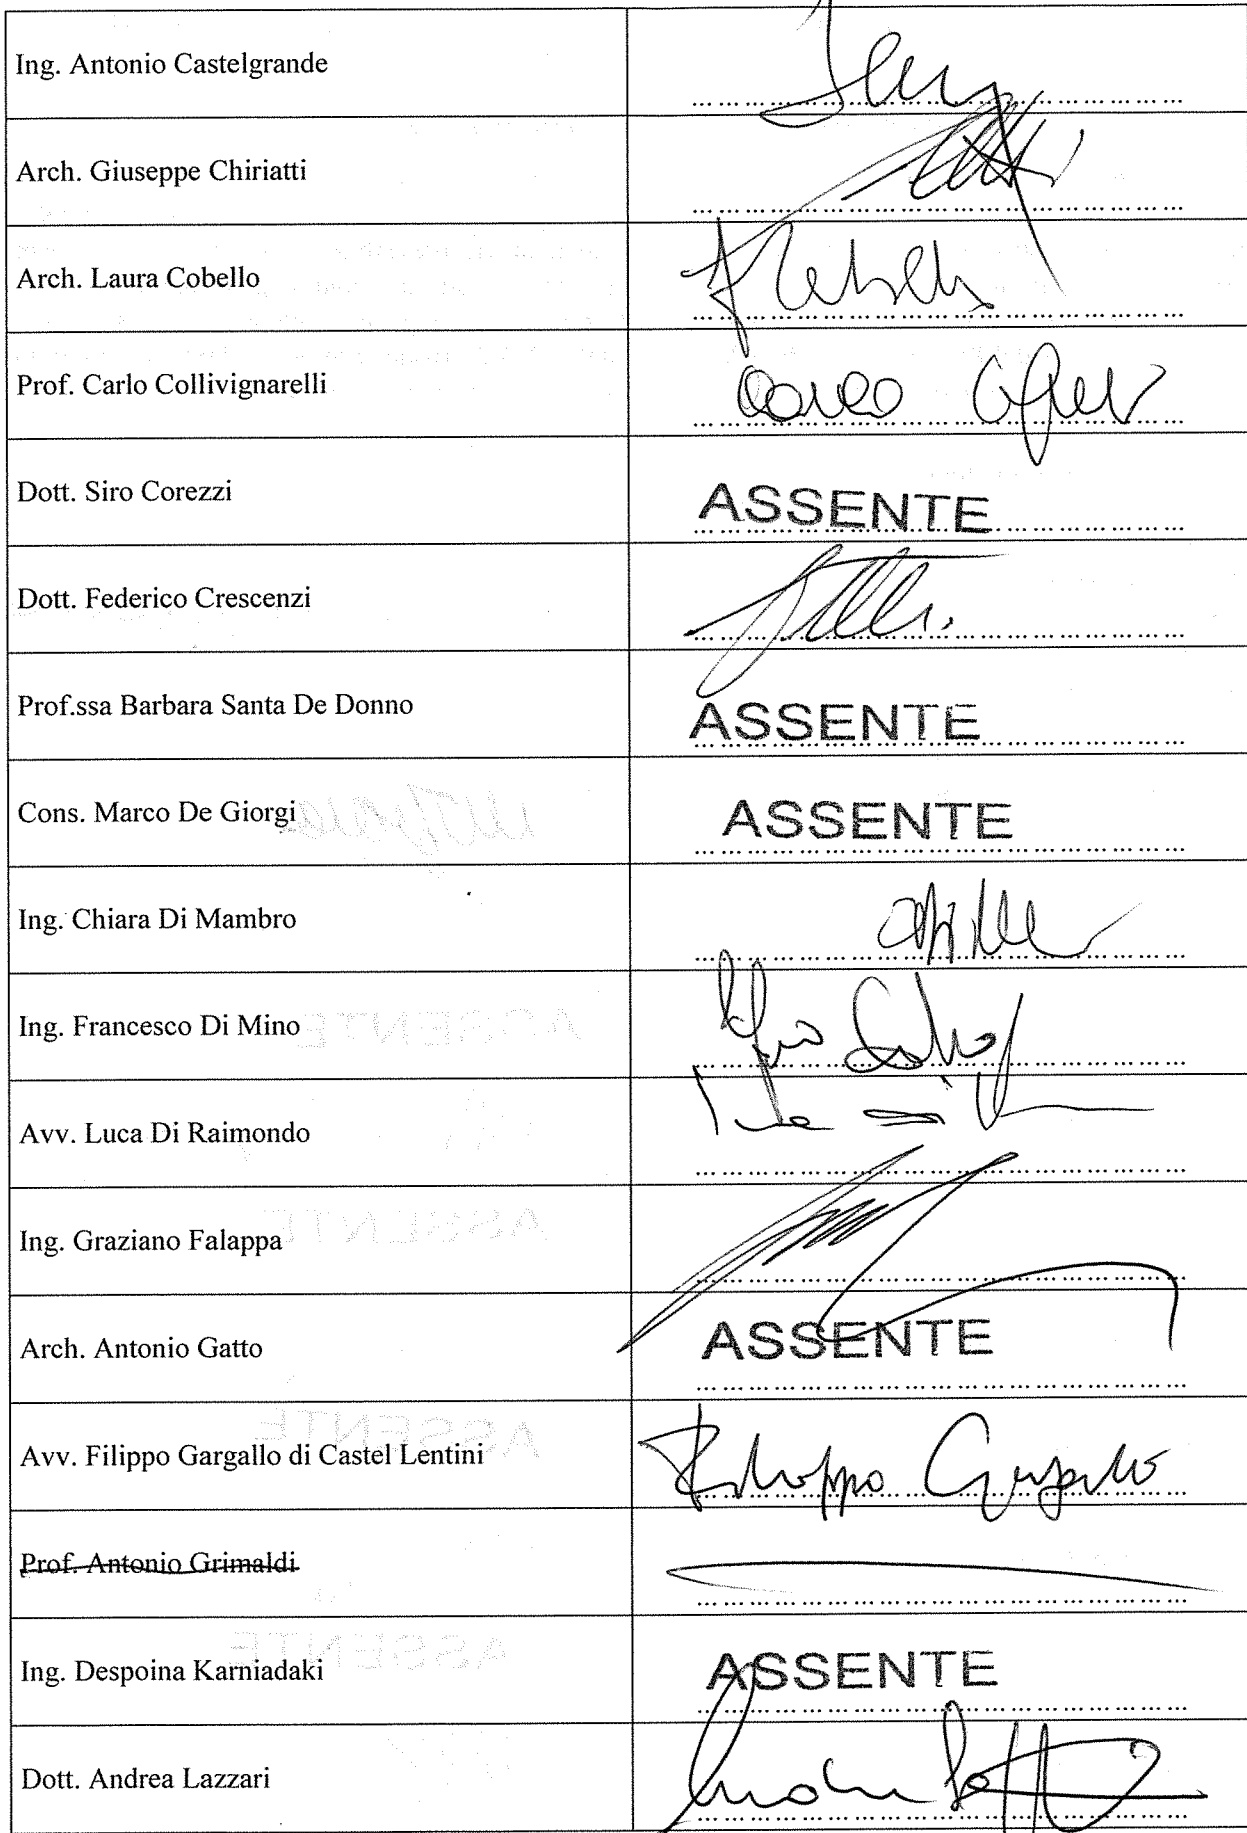 Ing. Antonio Castelgrande
Arch. Giuseppe Chiriatti
Arch. Laura Cobello
Prof. Carlo Collivignarelli
Dott. Siro Corezzi ASSENTE
Dott. Federico Crescenzi
Prof.ssa Barbara Santa De Donno ASSENTE
Cons. Marco De Giorgi ASSENTE
Ing. Chiara Di Mambro
Ing. Francesco Di Mino
Avv. Luca Di Raimondo
Ing. Graziano Falappa
Arch. Antonio Gatto ASSENTE
Avv. Filippo Gargallo di Castel Lentini Filippo Gargallo
Prof. Antonio Grimaldi
Ing. Despoina Karniadaki ASSENTE
Dott. Andrea Lazzari